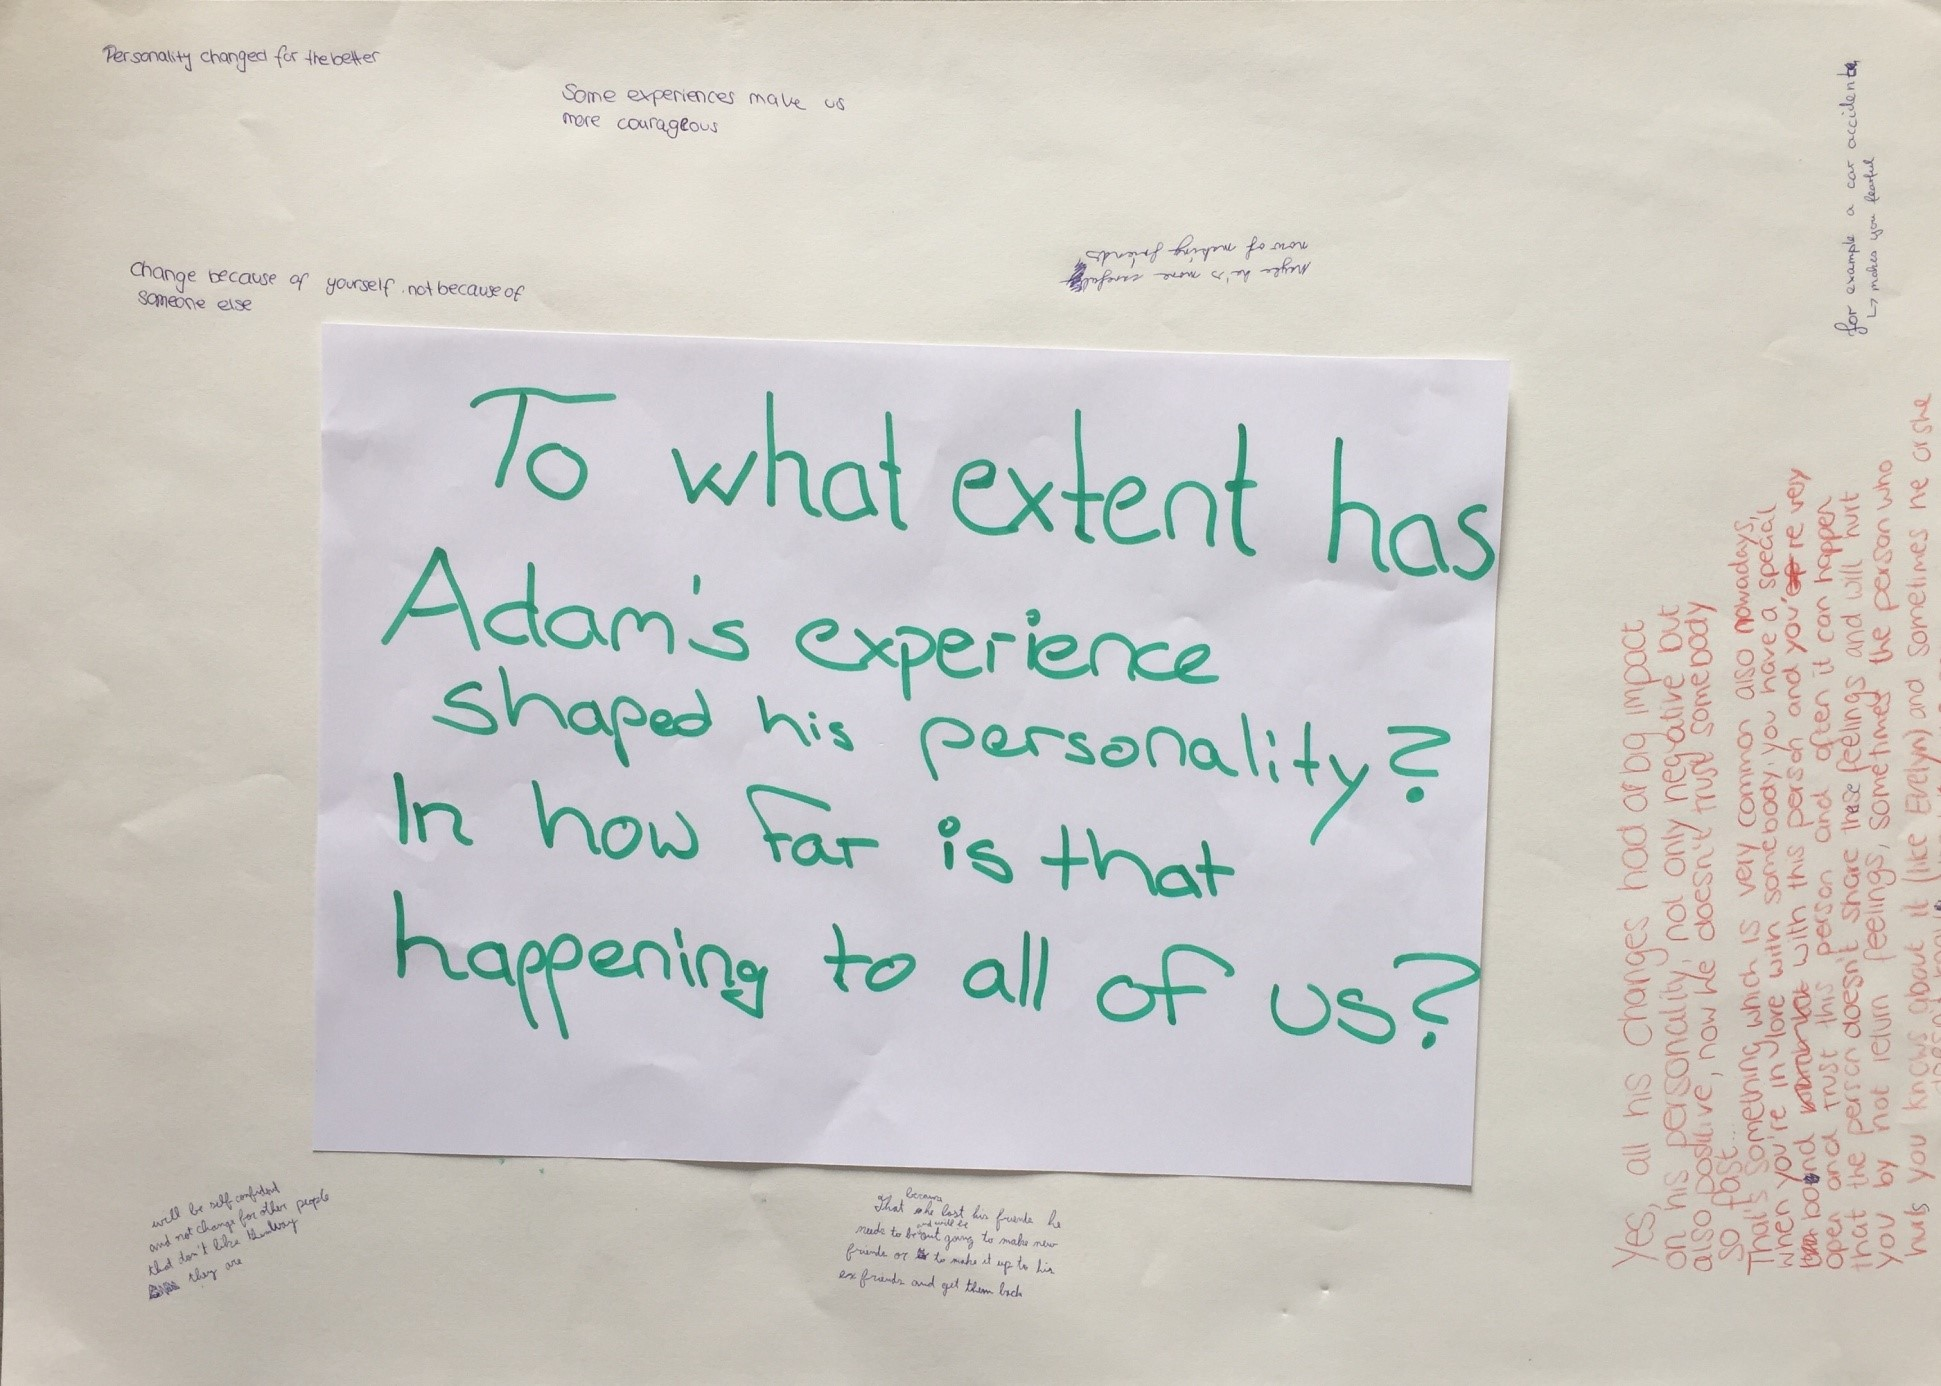 Personality changed for the better
Some experiences make us
more courageous
Change because of yourself not because of
someone else
he's more careful
now of making friends
for example a car accident
↳ makes you fearful
To what extent has
Adam's experience
shaped his personality?
In how far is that
happening to all of us?
will be self confident
and not change for other people
that don't like the way
they are
because
That he lost his friends he
and will be
needs to be going to make new
friends or to make it up to his
ex friends and get them back
Yes, all his changes had a big impact
on his personality, not only negative but
also positive, now he doesn't trust somebody
so fast...
That's something which is very common also nowadays,
when you're in love with somebody, you have a special
bond with this person and you're very
open and trust this person and often it can happen
that the person doesn't share these feelings and will hurt
you by not return feelings, sometimes the person who
hurts you knows about it (like Evelyn) and sometimes he or she